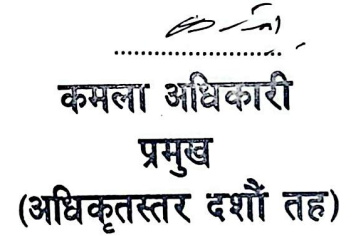 कमला अधिकारी
प्रमुख
(अधिकृतस्तर दशौं तह)